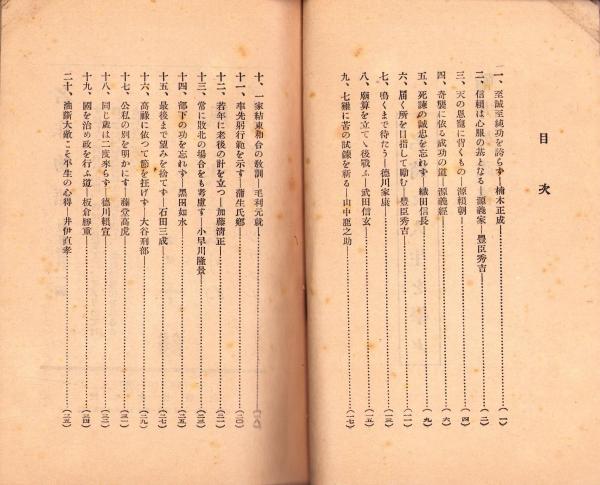 目次
一、至誠至純功を誇らず―楠木正成………(一)
二、信頼は心服の基となる―源義家―豊臣秀吉………(二)
三、天の恩寵に背くもの―源頼朝………(四)
四、奇襲に依る成功の道―源義經………(六)
五、死諫の誠忠を忘れず―織田信長………(九)
六、届く所を目指して勵む―豊臣秀吉………(一一)
七、鳴くまで待たう―德川家康………(一三)
八、廟算を立てゝ後戰ふ―武田信玄………(一五)
九、七難に苦の試鍊を祈る―山中鹿之助………(一七)
十、一家結束和合の敎訓―毛利元就………(一八)
十一、率先躬行範を示す―蒲生氏鄕………(二〇)
十二、若年に老後の計を立つ―加藤淸正………(二一)
十三、常に敗北の場合をも考慮す―小早川隆景………(二三)
十四、部下の功を忘れず―黑田如水………(二五)
十五、最後まで望みを捨てず―石田三成………(二七)
十六、高祿に依つて節を抂げず―大谷刑部………(二九)
十七、公私の別を明かにす―藤堂高虎………(三一)
十八、同じ歲は二度來らず―德川賴宣………(三二)
十九、國を治め政を行ふ道―板倉勝重………(三四)
二十、油斷大敵こそ平生の心得―井伊直孝………(三五)